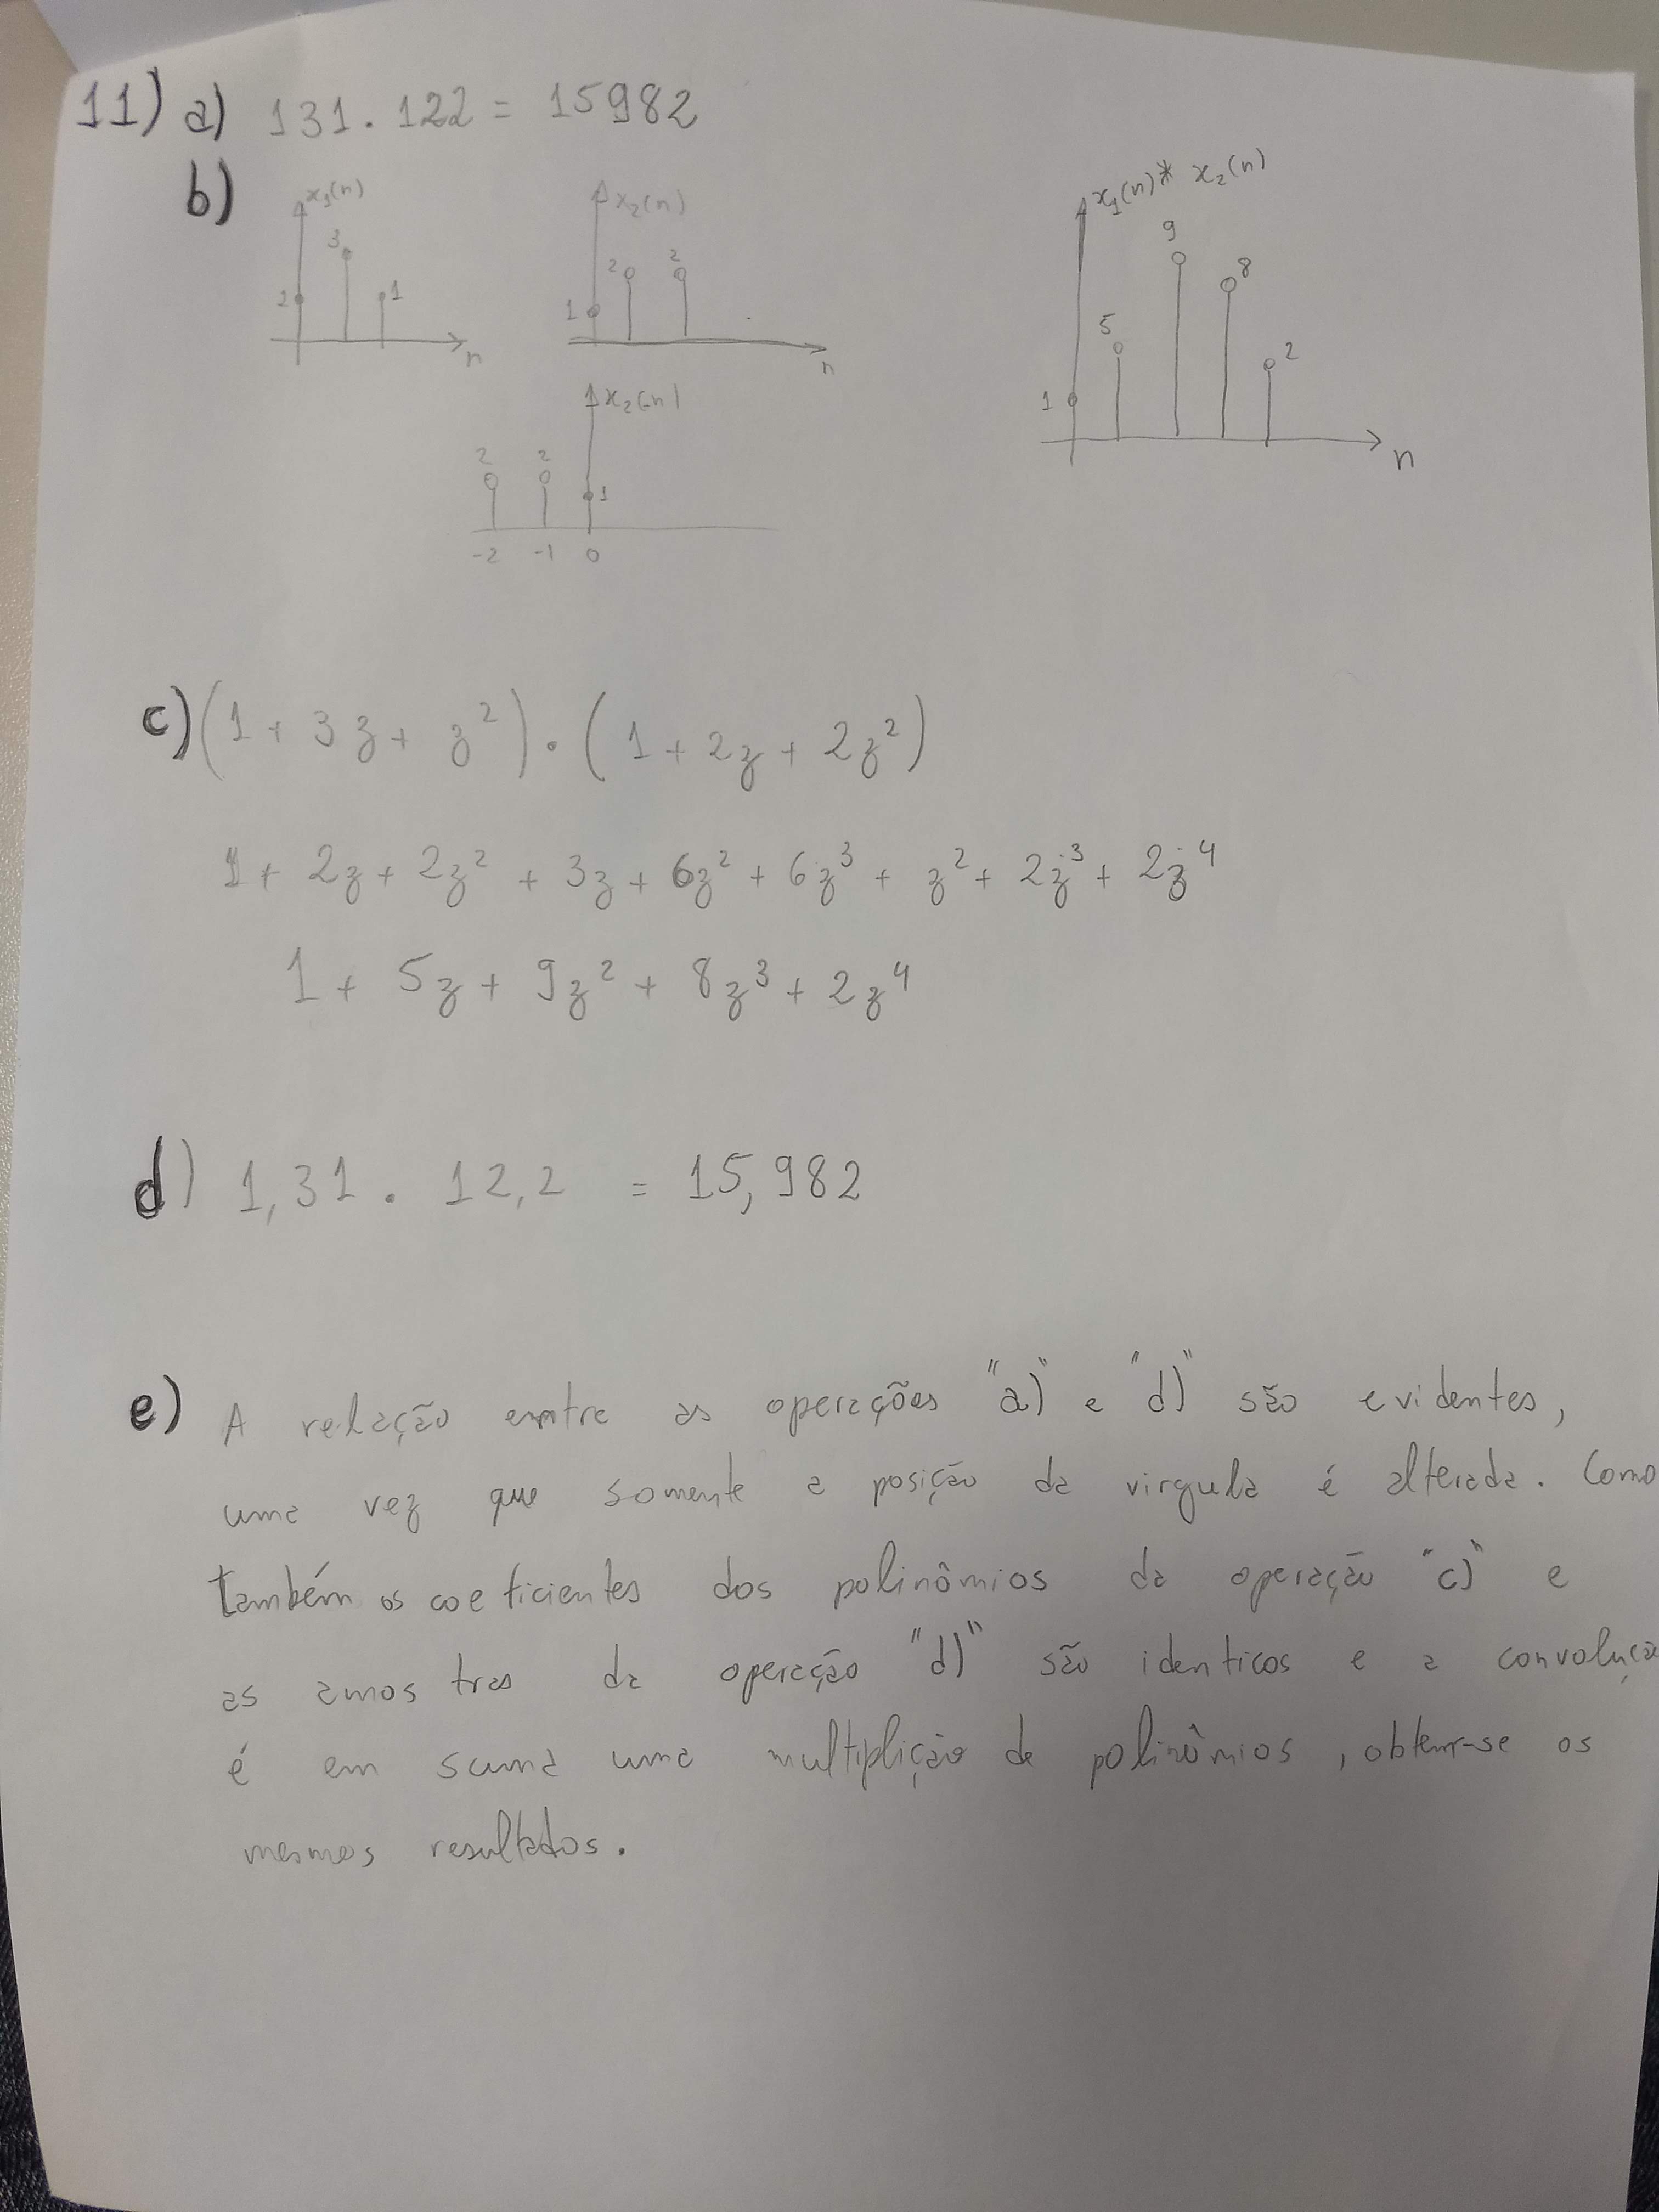 11) a) 131 . 122 = 15982
b)
x₁(n)
3
2
1
n
x₂(n)
2 2
1
n
x₂(-n)
2 2
1
-2 -1 0
x₁(n) * x₂(n)
9
8
5
2
1
n
c) (1 + 3z + z²) . (1 + 2z + 2z²)
1 + 2z + 2z² + 3z + 6z² + 6z³ + z² + 2z³ + 2z⁴
1 + 5z + 9z² + 8z³ + 2z⁴
d) 1,31 . 12,2 = 15,982
e) A relação entre as operações "a)" e "d)" são evidentes,
uma vez que somente a posição da virgula é alterada. Como
também os coeficientes dos polinômios da operação "c)" e
as amostras da operação "d)" são identicos e a convoluçã
é em suma uma multiplição de polinômios, obtem-se os
mesmos resultados.